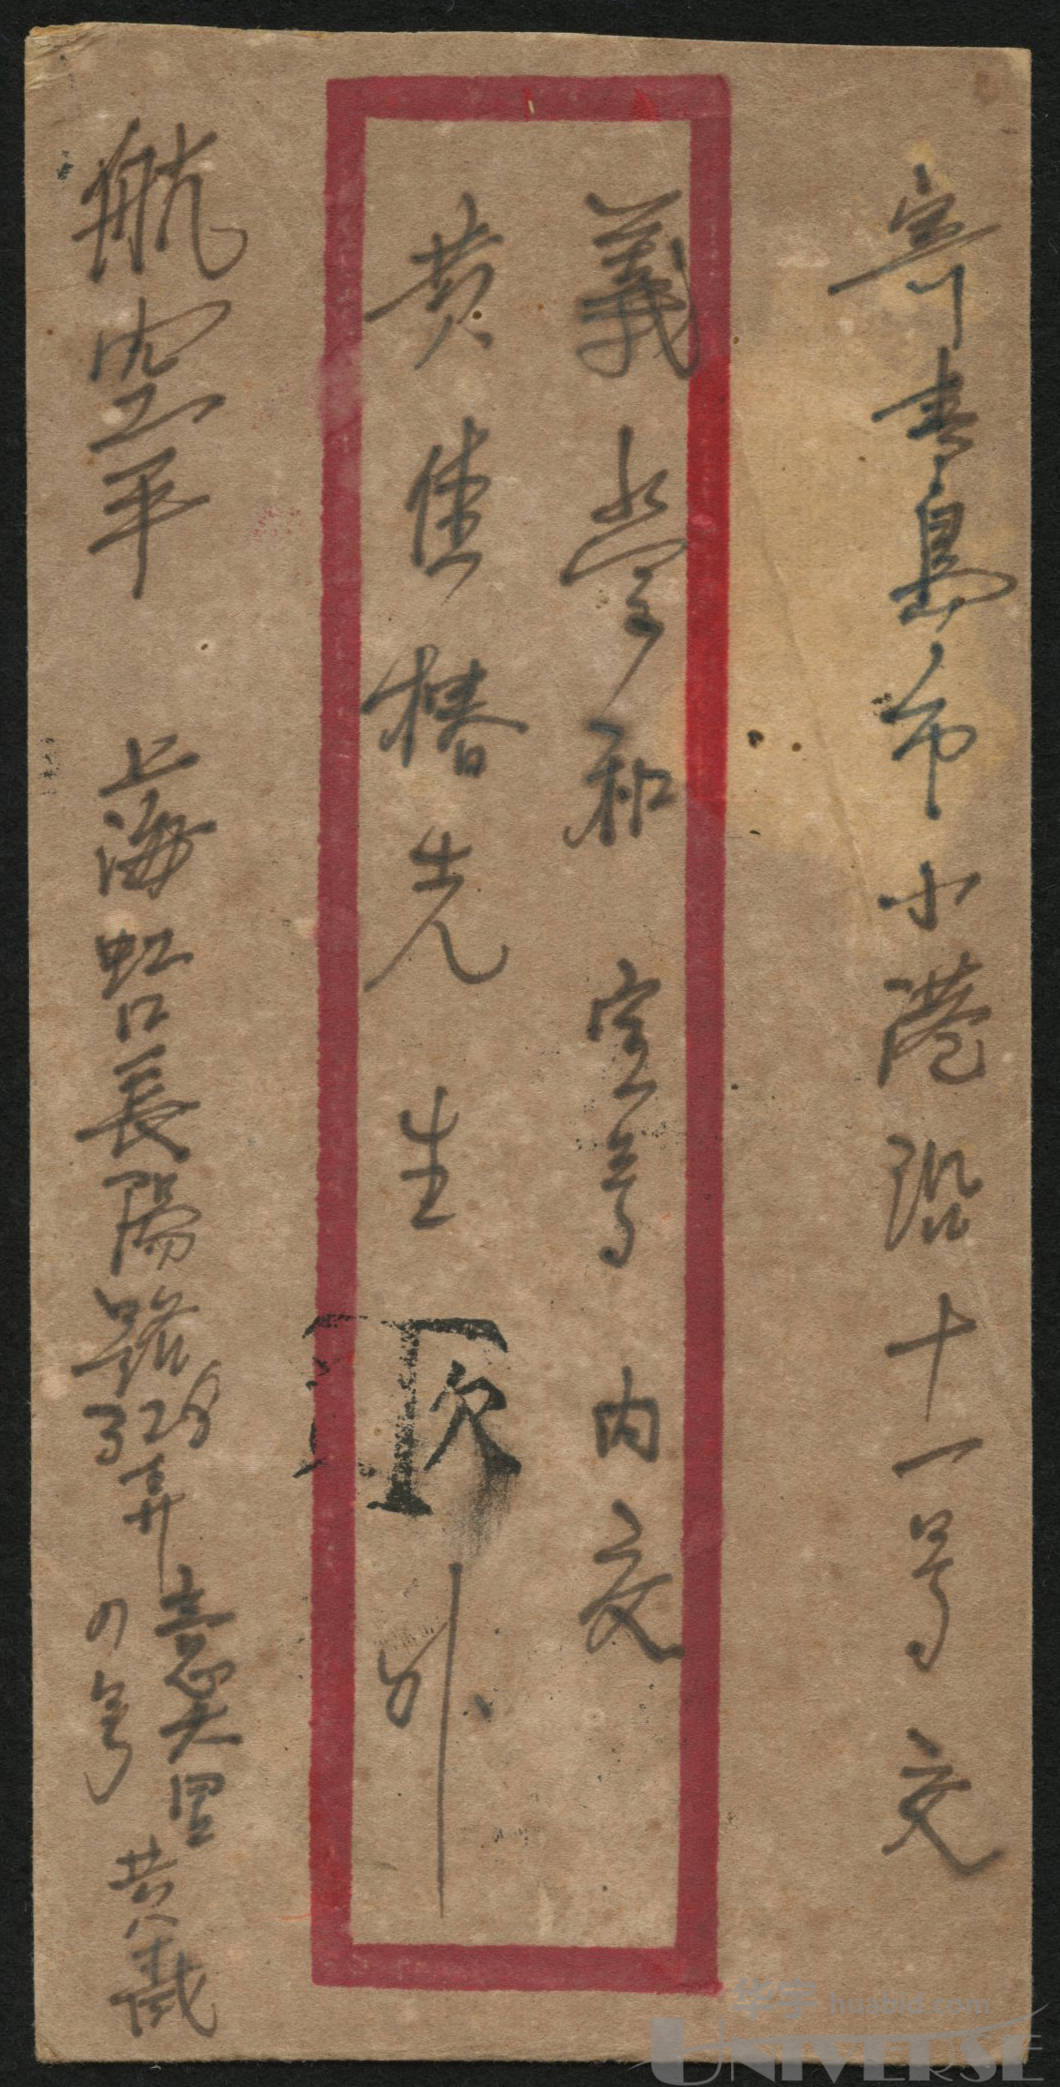 寄青島市小港沿十一号交
義堂和宝号内交
黄佳椿先生
航空平
上海虹口長陽路
328弄
意大里
黄
T
欠
华宇 huabid.com
UNIVERSE